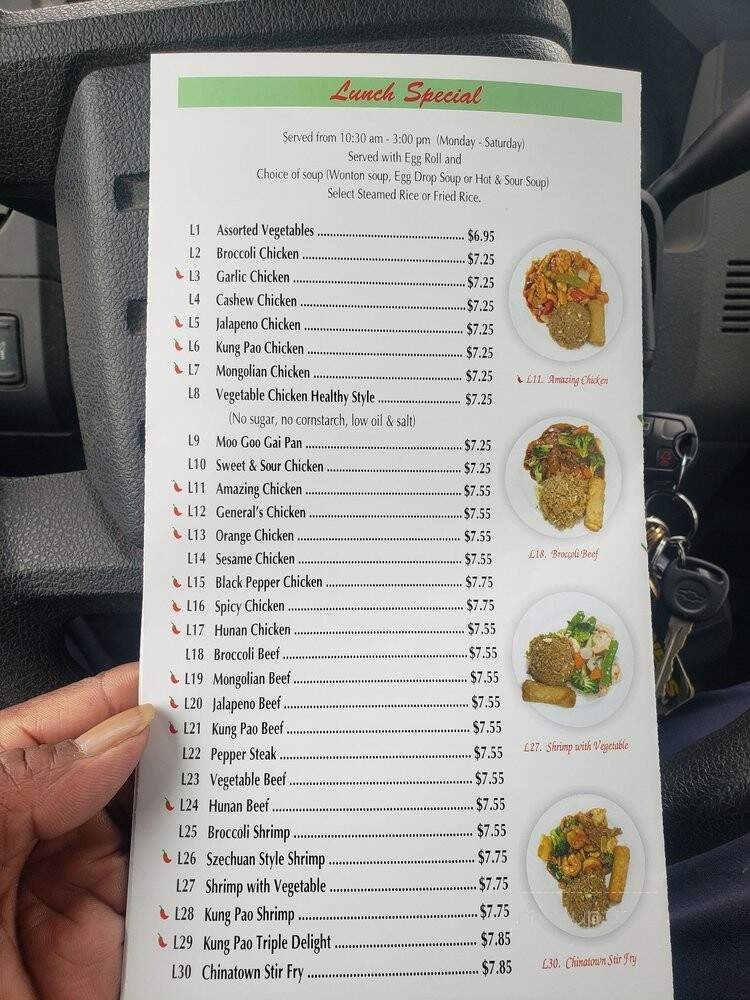 Lunch Special
Served from 10:30 am - 3:00 pm (Monday - Saturday)
Served with Egg Roll and
Choice of soup (Wonton soup, Egg Drop Soup or Hot & Sour Soup)
Select Steamed Rice or Fried Rice.
L1 Assorted Vegetables ........ $6.95
L2 Broccoli Chicken ........ $7.25
L3 Garlic Chicken ........ $7.25
L4 Cashew Chicken ........ $7.25
L5 Jalapeno Chicken ........ $7.25
L6 Kung Pao Chicken ........ $7.25
L7 Mongolian Chicken ........ $7.25
L8 Vegetable Chicken Healthy Style ........ $7.25
(No sugar, no cornstarch, low oil & salt)
L9 Moo Goo Gai Pan ........ $7.25
L10 Sweet & Sour Chicken ........ $7.25
L11 Amazing Chicken ........ $7.55
L12 General's Chicken ........ $7.55
L13 Orange Chicken ........ $7.55
L14 Sesame Chicken ........ $7.55
L15 Black Pepper Chicken ........ $7.75
L16 Spicy Chicken ........ $7.75
L17 Hunan Chicken ........ $7.55
L18 Broccoli Beef ........ $7.55
L19 Mongolian Beef ........ $7.55
L20 Jalapeno Beef ........ $7.55
L21 Kung Pao Beef ........ $7.55
L22 Pepper Steak ........ $7.55
L23 Vegetable Beef ........ $7.55
L24 Hunan Beef ........ $7.55
L25 Broccoli Shrimp ........ $7.55
L26 Szechuan Style Shrimp ........ $7.75
L27 Shrimp with Vegetable ........ $7.75
L28 Kung Pao Shrimp ........ $7.75
L29 Kung Pao Triple Delight ........ $7.85
L30 Chinatown Stir Fry ........ $7.85
L11. Amazing Chicken
L18. Broccoli Beef
L27. Shrimp with Vegetable
L30. Chinatown Stir Fry